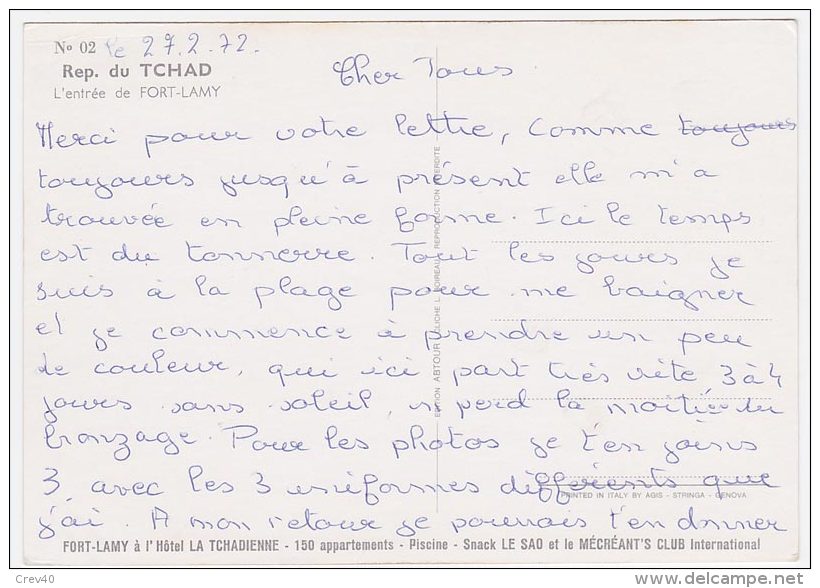 No 02 le 27.2.72.
Rep. du TCHAD
L'entrée de FORT-LAMY
Cher Tous.
Merci pour votre lettre, comme toujours
toujours jusqu'à présent elle m'a
trouvée en pleine forme. Ici le temps
est du tonnerre. Tout les jours je
suis à la plage pour me baigner
et je commence à prendre un peu
de couleur, qui ici part très vite, 3 à 4
jours sans soleil, on perd la moitié du
bronzage. Pour les photos je t'en joins
3 avec les 3 uniformes différents que
j'ai. A mon retour je pourrais t'en donner
EDITION ABTOUR CLICHE L. REPRODUCTION INTERDITE
PRINTED IN ITALY BY AGIS - STRINGA - GENOVA
FORT-LAMY à l'Hôtel LA TCHADIENNE - 150 appartements - Piscine - Snack LE SAO et le MÉCRÉANT'S CLUB International
Crev40
delcampe.net